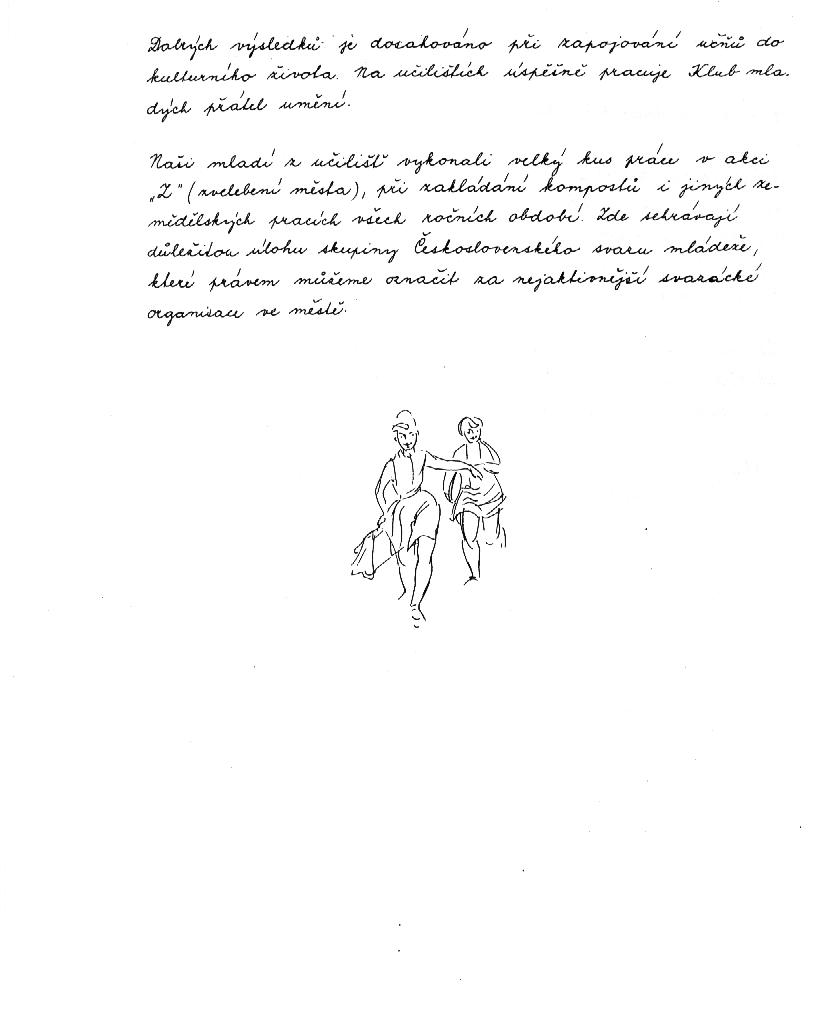 Dobrých výsledků je dosahováno při zapojování učňů do
kulturního života. Na učilištích úspěšně pracuje Klub mla-
dých přátel umění.
Naši mladí z učilišť vykonali velký kus práce v akci
„Z" (zvelebení města), při zakládání kompostů i jiných ze-
mědělských pracích všech ročních období. Zde sehrávají
důležitou úlohu skupiny Československého svazu mládeže,
které právem můžeme označit za nejaktivnější svazácké
organisace ve městě.